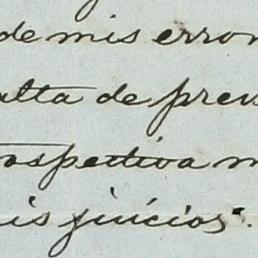 de mis error
alta de prev
ospectiva m
is juicios".